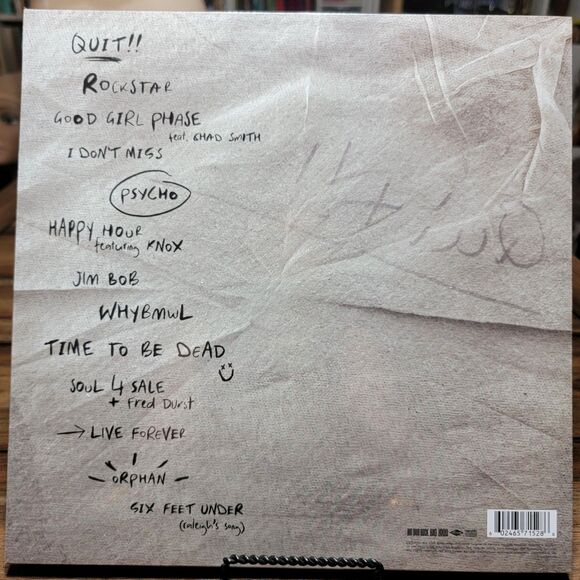 QUIT!!
ROCKSTAR
GOOD GIRL PHASE
feat. CHAD SMITH
I DON'T MISS
PSYCHO
HAPPY HOUR
featuring KNOX
JIM BOB
WHYBMWL
TIME TO BE DEAD
SOUL 4 SALE
+ Fred Durst
→ LIVE FOREVER
ORPHAN
SIX FEET UNDER
(raleigh's song)
Quit!!
6 02465 71528